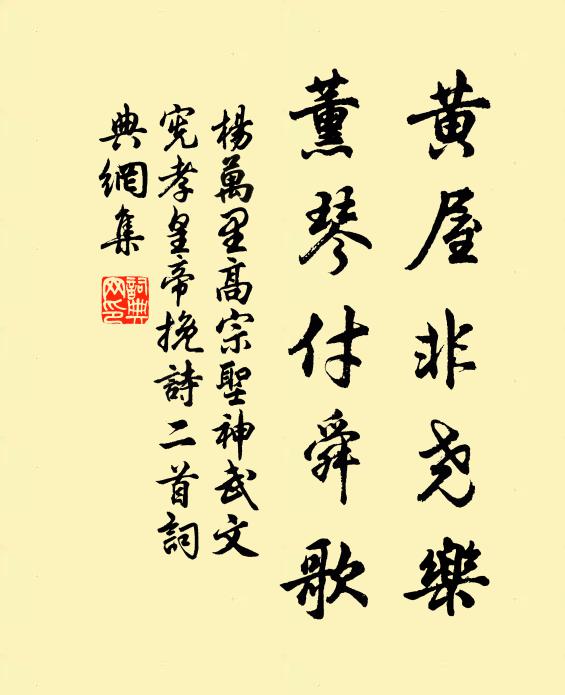 黄屋非尧樂
薰琴付舜歌
楊萬里高宗聖神武文
憲孝皇帝挽詩二首詞
典網集
詞典網印